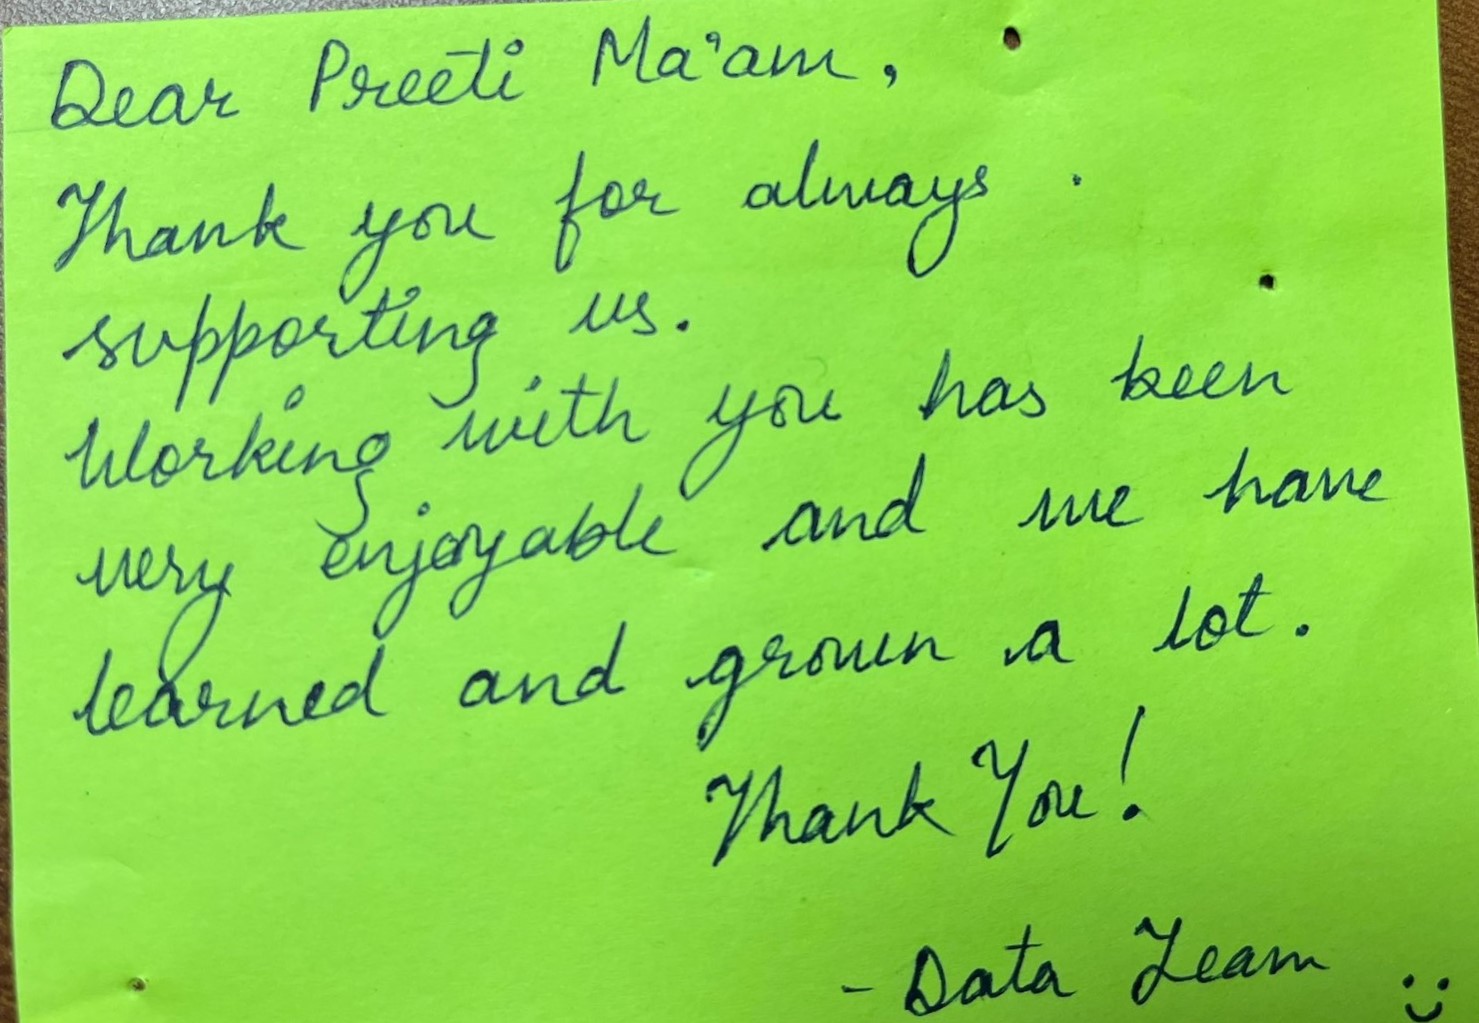 Dear Preeti Ma'am,
Thank you for always
supporting us.
Working with you has been
very enjoyable and we have
learned and grown a lot.
Thank You!
- Data Team :)